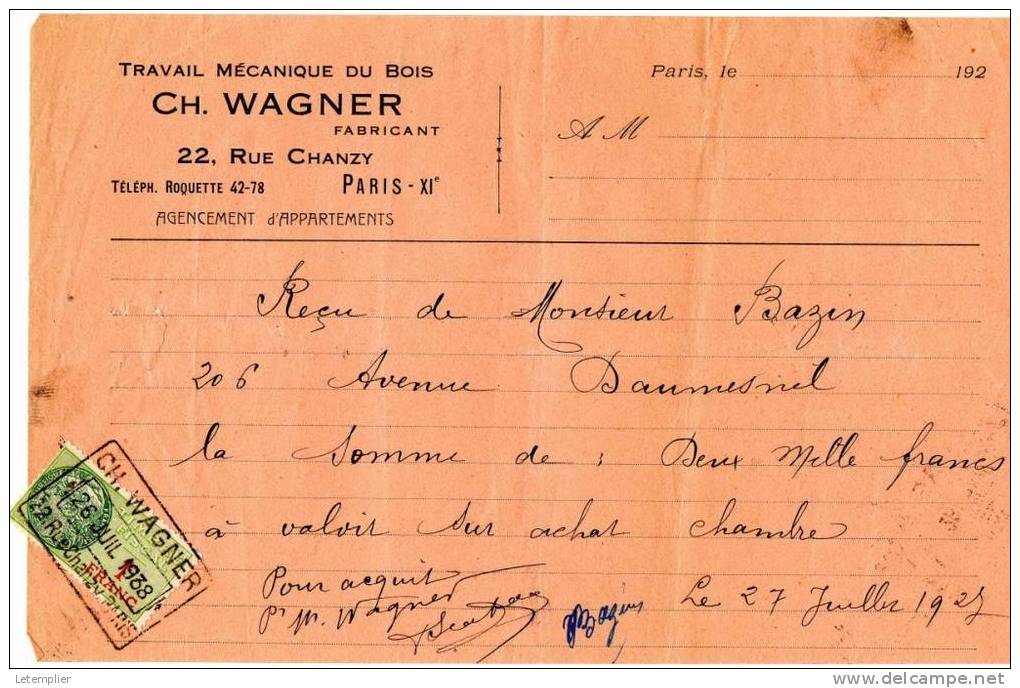 TRAVAIL MÉCANIQUE DU BOIS
CH. WAGNER
FABRICANT
22, RUE CHANZY
TÉLÉPH. ROQUETTE 42-78 PARIS - XIe
AGENCEMENT d'APPARTEMENTS
Paris, le 192
A M
Reçu de Monsieur Bazin
206 Avenue Daumesnil
la somme de : Deux Mille francs
à valoir sur achat chambre
Pour acquit
Pr M. Wagner
Bazin
Le 27 Juillet 192
CH. WAGNER
26 JUIL 1938
22 Rue Chanzy, PARIS
1 FRANC
Letemplier
www.delcampe.net